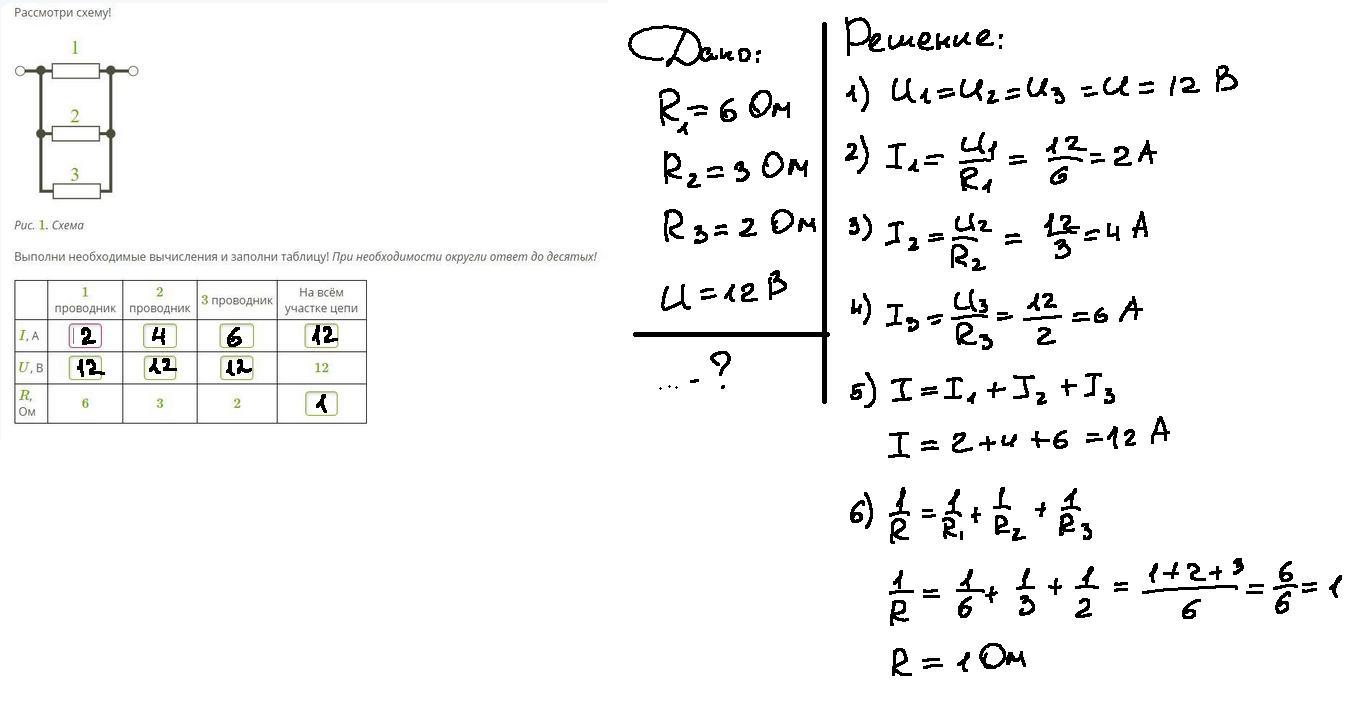 Рассмотри схему!
1
2
3
Рис. 1. Схема
Выполни необходимые вычисления и заполни таблицу! При необходимости округли ответ до десятых!
1 проводник 2 проводник 3 проводник На всём участке цепи
I, А 2 4 6 12
U, В 12 12 12 12
R, Ом 6 3 2 1
Дано:
R₁=6 Ом
R₂=3 Ом
R₃=2 Ом
U=12 В
...-?
Решение:
1) U₁=U₂=U₃=U=12 В
2) I₁=U₁/R₁=12/6=2 А
3) I₂=U₂/R₂=12/3=4 А
4) I₃=U₃/R₃=12/2=6 А
5) I=I₁+I₂+I₃
I=2+4+6=12 А
6) 1/R=1/R₁+1/R₂+1/R₃
1/R=1/6+1/3+1/2=(1+2+3)/6=6/6=1
R=1 Ом